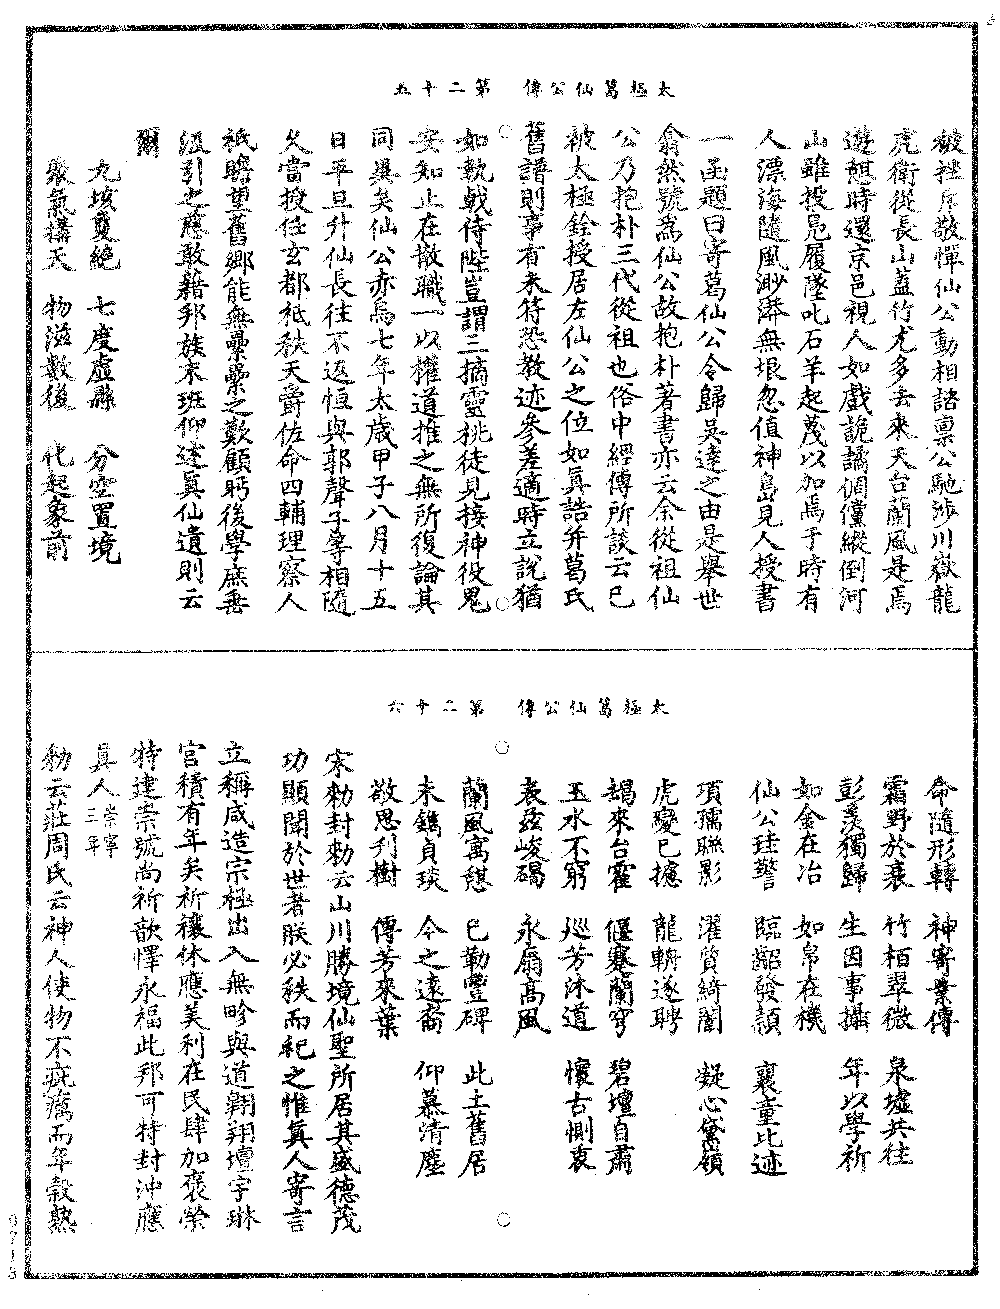 太極葛仙公傳　第二十五
被禮序敬憚仙公動相諮稟公馳涉川嶽龍
虎衛從長山蓋竹尤多去來天台蘭風是焉
遊憩時還京邑視人如戲詭譎倜儻縱倒河
山雖投鳧履墜叱石羊起蔑以加焉于時有
人漂海隨風渺漭無垠忽值神島見人授書
一函題曰寄葛仙公令歸吳達之由是舉世
翕然號為仙公故抱朴著書亦云余從祖仙
公乃抱朴三代從祖也俗中經傳所談云已
被太極銓授居左仙公之位如真誥并葛氏
舊譜則事有未符恐教迹參差適時立說猶
如執戟侍陛豈謂三摘靈桃徒見接神役鬼
安知止在散職一以權道推之無所復論其
同異矣仙公赤烏七年太歲甲子八月十五
日平旦升仙長往不返恒與郭聲子等相隨
久當授任玄都祗秩天爵佐命四輔理察人
祇瞻望舊鄉能無纍纍之歎顧眄後學庶垂
汲引之慈敢藉邦族末班仰述真仙遺則云
爾
九垓夐絕　七度虛懸　分空置境
聚氣構天　物滋數後　化起象前
太極葛仙公傳　第二十六
命隨形轉　神寄業傳
霜野於衰　竹栢翠微　泉墟共往
彭羨獨歸　生因事攝　年以學祈
如金在冶　如帛在機
仙公珪警　臨齠發穎　襄童比迹
項孺聯影　濯質綺闈　凝心黛嶺
虎變已攄　龍輧遂騁
朅來台霍　偃蹇蘭穹　碧壇自肅
玉水不窮　巡芳沐道　懷古惻衷
表茲峻碣　永扇高風
蘭風寓憩　已勒豐碑　此土舊居
未鐫貞琰　今之遠裔　仰慕清塵
敬思刋樹　傳芳來葉
宋勑封勑云山川勝境仙聖所居其盛德茂
功顯聞於世者朕必秩而祀之惟真人寄言
立稱咸造宗極出入無畛與道翱翔壇宇琳
官積有年矣祈禳休應美利在民肆加褒榮
特建崇號尚祈歆懌永福此邦可特封沖應
真人崇寧三年
勑云莊周氏云神人使物不疵癘而年穀熟
0715